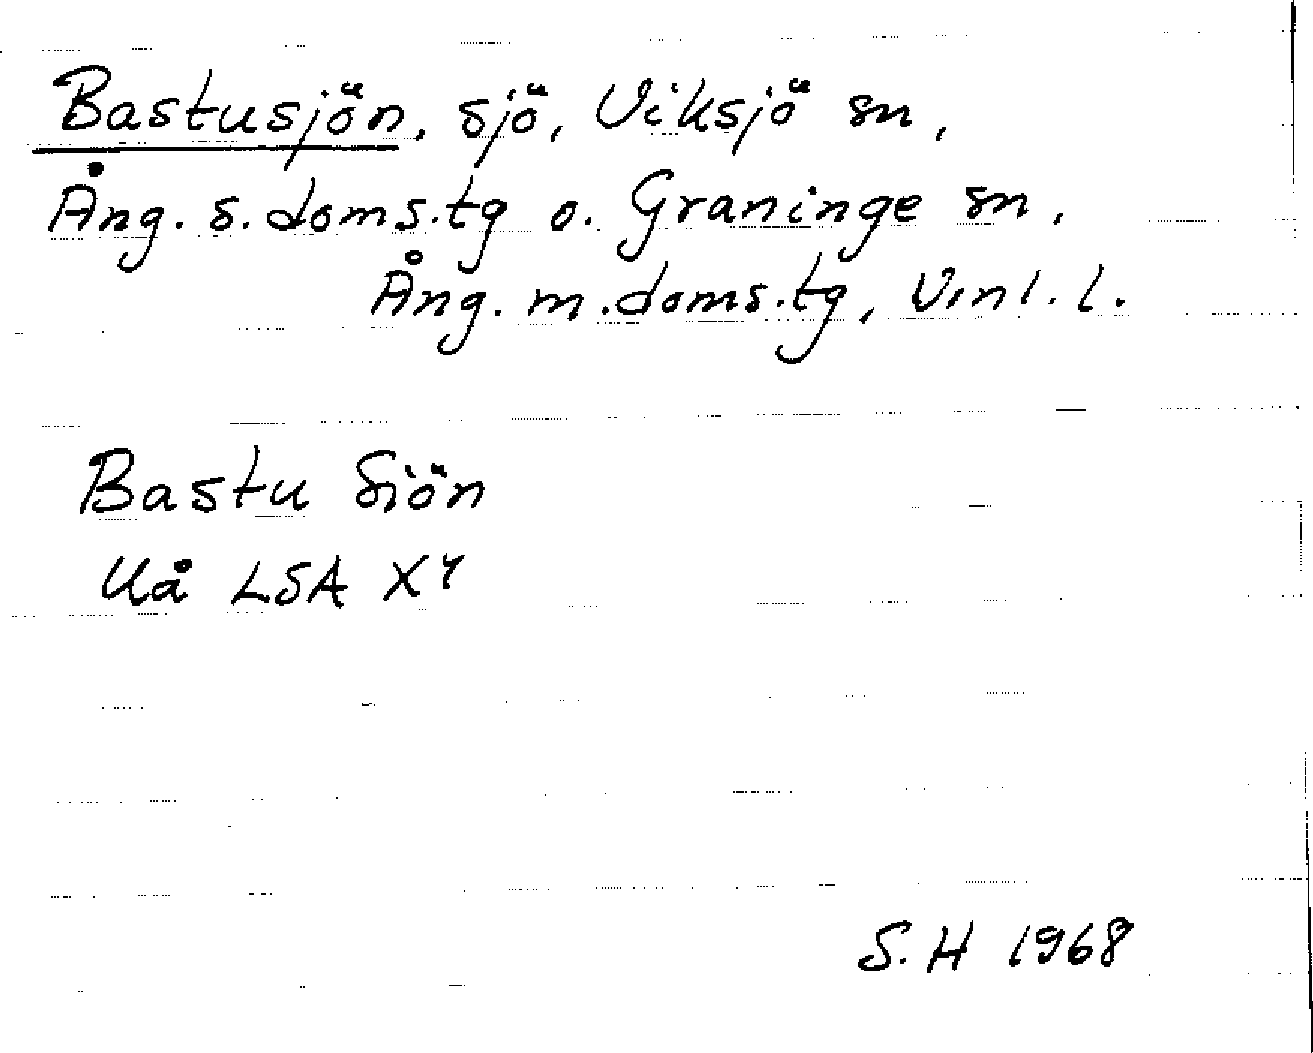 Bastusjön, sjö, Viksjö sn,
Ång. s. doms.tg o. Graninge sn,
Ång. m. doms.tg, Vnl. l.
Bastu Siön
Uå LSA X4
S. H 1968